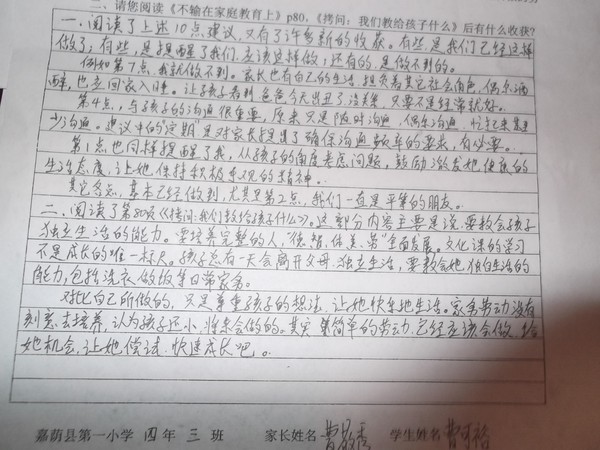 二、请您阅读《不输在家庭教育上》p80,《拷问:我们教给孩子什么》后有什么收获?
一、阅读了上述10点建议,又有了许多新的收获。有些是我们已经这样
做了;有些,是提醒了我们,应该这样做;还有的,是做不到的。
例如第7点,我就做不到。家长也有自己的生活,担负着其它社会角色,偶尔酒
醉,也立回家入睡。让孩子看到爸爸今天出丑了,没关系,只要不是经常就好。
第4点,与孩子的沟通很重要,原来只是随时沟通,偶尔沟通,忙起来甚至
少沟通。建议中的定期是对家长提出了确保沟通频率的要求,有必要。
第1点也同样提醒了我,从孩子的角度考虑问题,鼓励激发她使有的
生活态度,让她保持积极乐观的精神。
其它各点,基本已经做到,尤其是第2点,我们一直是平等的朋友。
二、阅读了第80项《拷问:我们教给孩子什么》。这部分内容主要是说要教会孩子
独立生活的能力。要培养完整的人,“德、智、体、美、劳”全面发展。文化课的学习
不是成长的唯一标尺。孩子总有一天会离开父母,独立生活,要教会她独自生活的
能力,包括洗衣做饭等日常家务。
对比自己所做的,只是尊重孩子的想法,让她快乐地生活。家务劳动没有
刻意去培养,认为孩子还小,将来会做的。其实简单的劳动,已经应该会做,给
她机会,让她尝试,快速成长吧。
嘉荫县第一小学 四 年 三 班 家长姓名 曹 学生姓名 曹